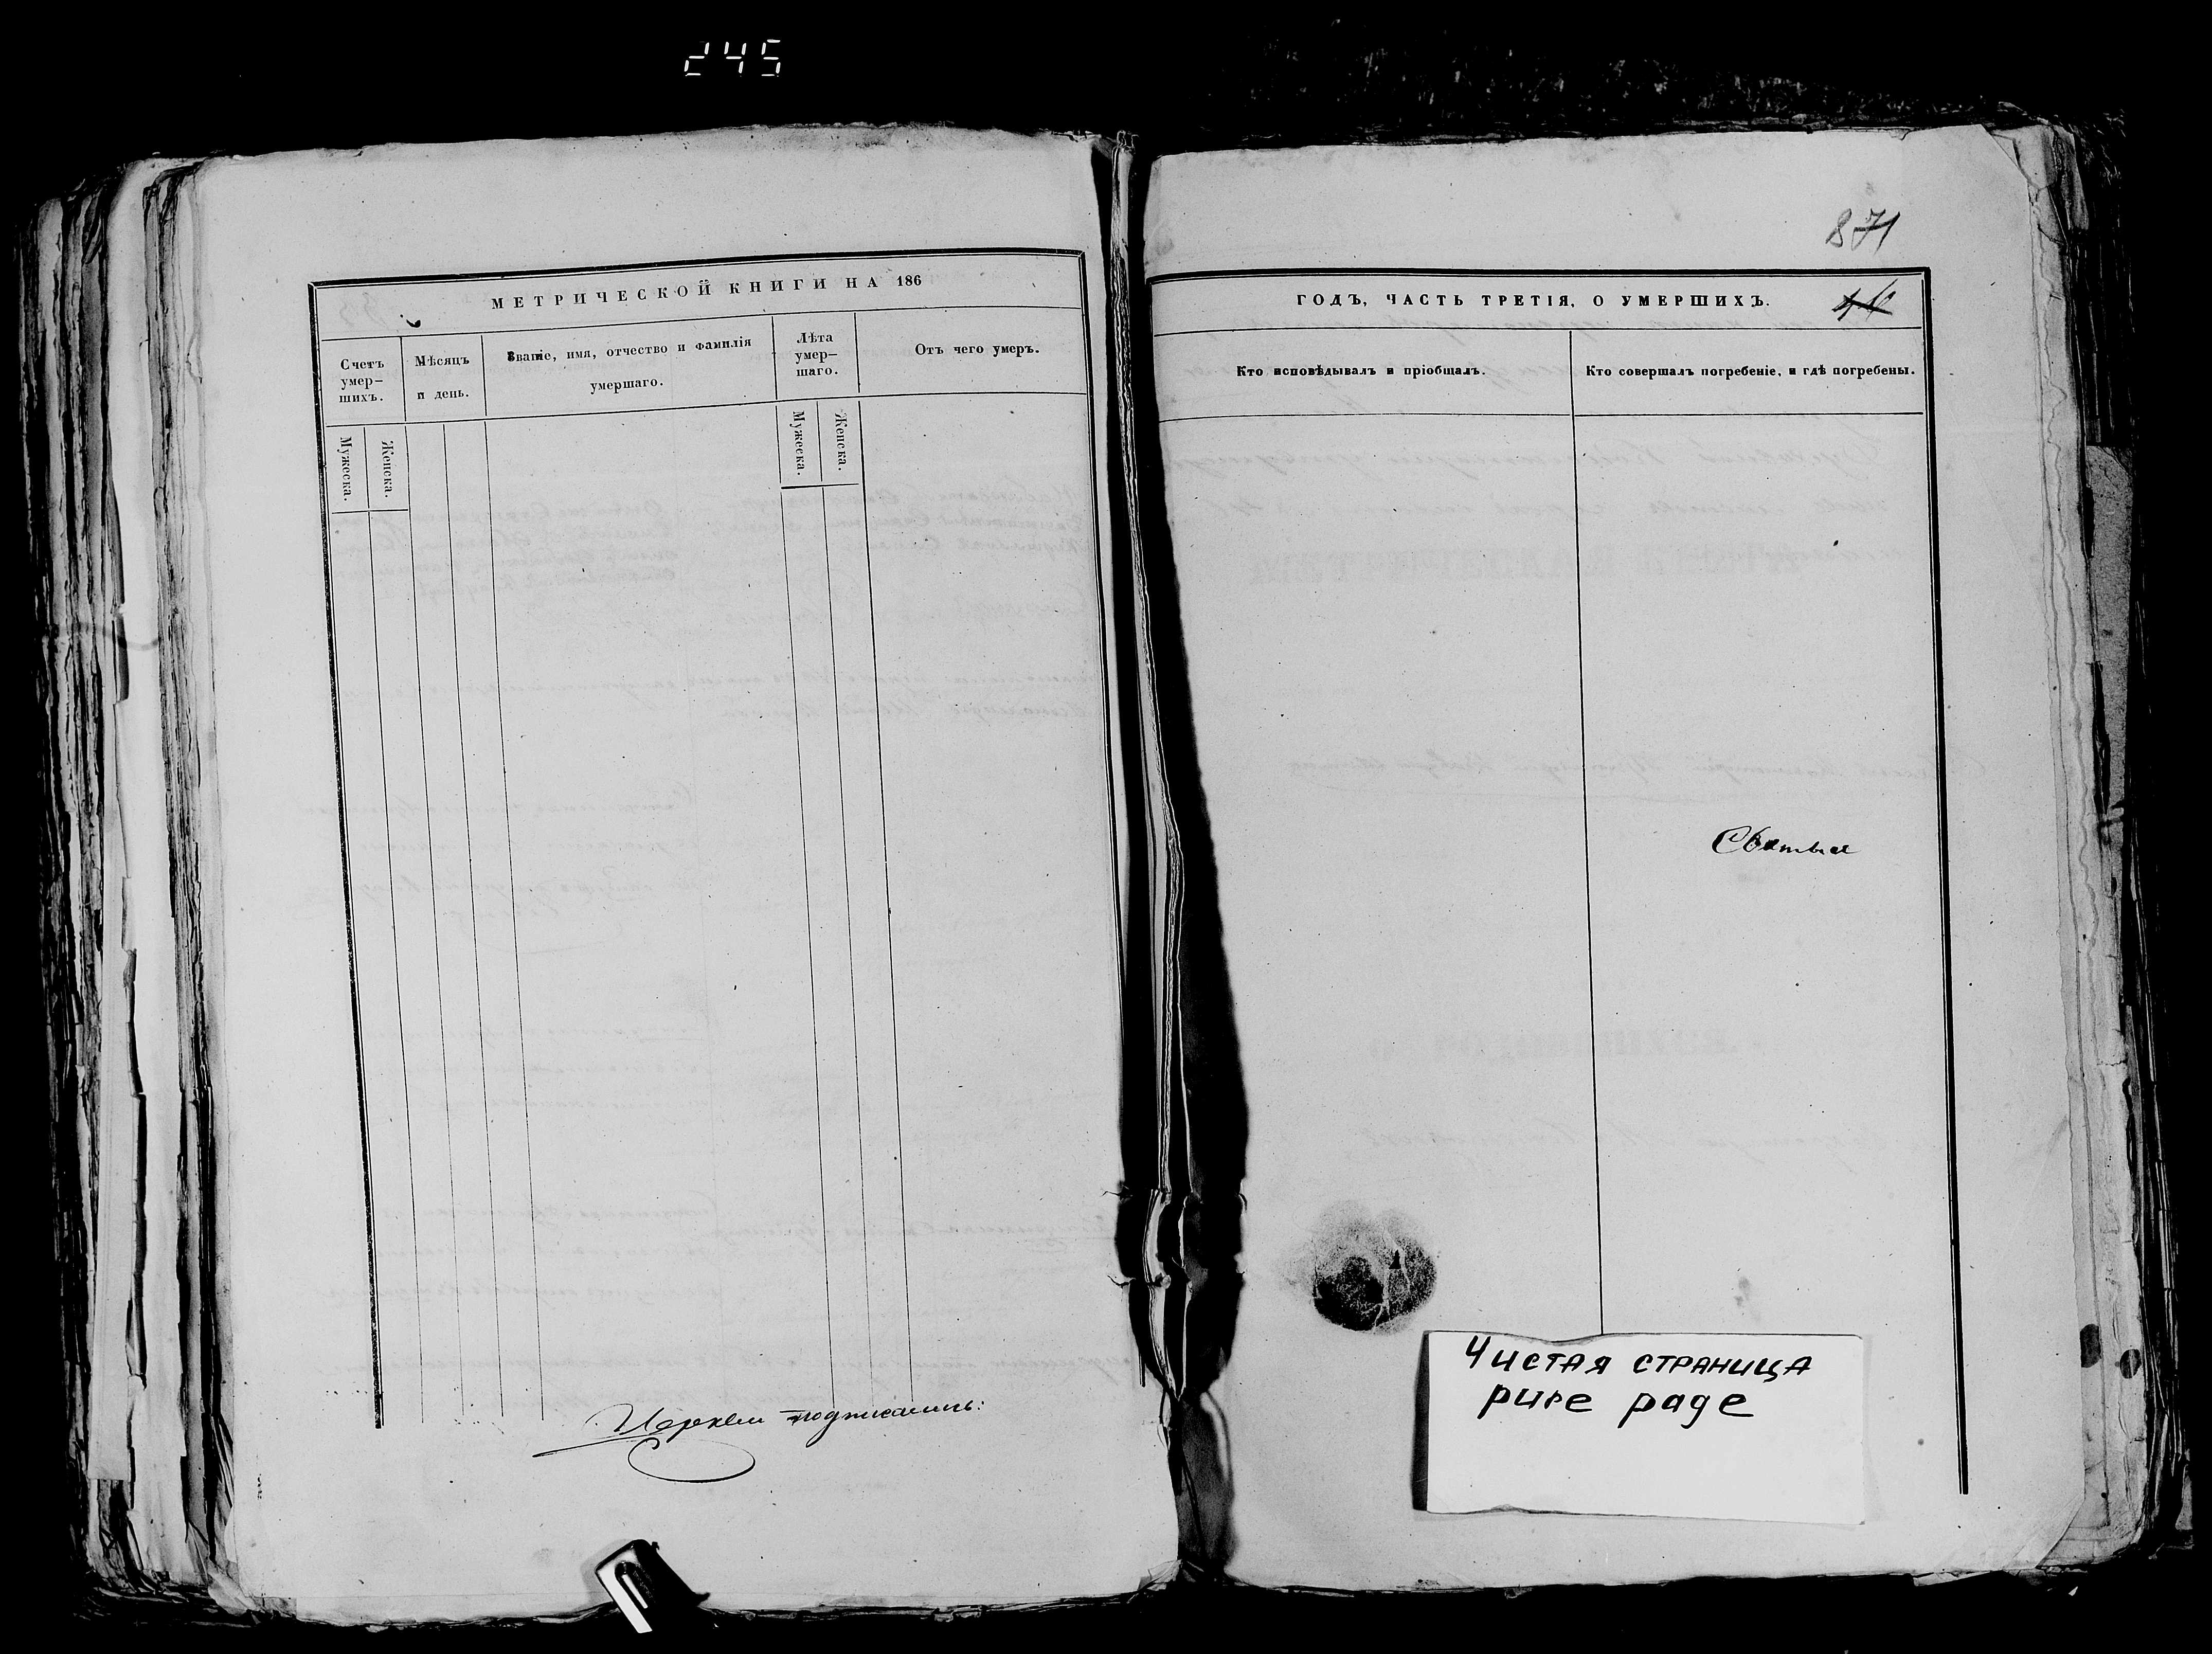 245
МЕТРИЧЕСКОЙ КНИГИ НА 186
Счетъ умер-шихъ.
Мужеска.
Женска.
Мѣсяцъ и день.
Званіе, имя, отчество и фамилія умершаго.
Лѣта умер-шаго.
Мужеска.
Женска.
Отъ чего умеръ.
871
ГОДЪ, ЧАСТЬ ТРЕТІЯ, О УМЕРШИХЪ.
Кто исповѣдывалъ и пріобщалъ.
Кто совершалъ погребеніе, и гдѣ погребены.
Чистая страница
pure page